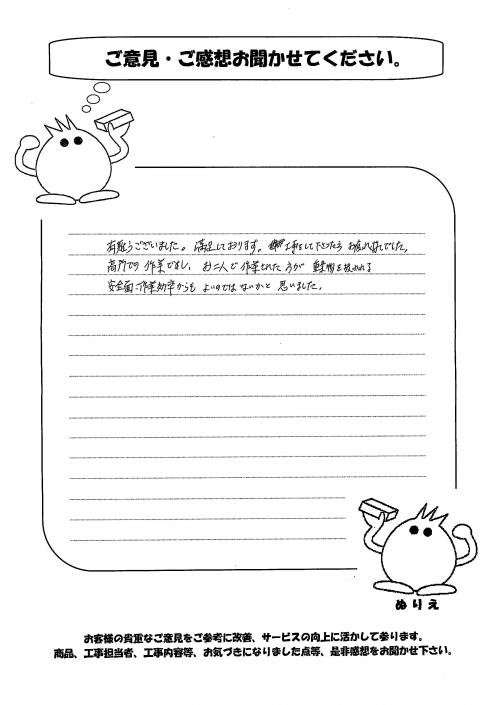 ご意見・ご感想お聞かせてください。
有難うございました。満足しております。工事をして下さった方 お疲れ様でした。
高所での作業ですし、お二人で作業された方が 重量物を扱われる
安全面・作業効率からも よいのではないかと 思いました。
ぬりえ
お客様の貴重なご意見をご参考に改善、サービスの向上に活かして参ります。
商品、工事担当者、工事内容等、お気づきになりました点等、是非感想をお聞かせ下さい。